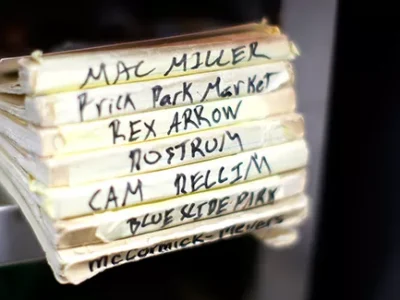 MAC MILLER
Frick Park Market
REX ARROW
ROSTRUM
CAM RELLIM
BLUE SLIDE PARK
McCormick-Meyers